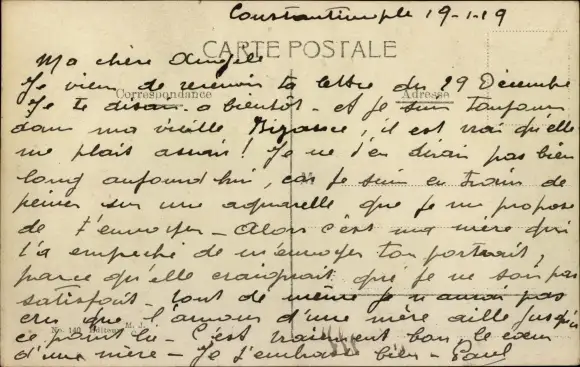 Constantinople 19-1-19
CARTE POSTALE
Ma chère Angèle
Correspondance
Adresse
Je viens de recevoir ta lettre du 29 Décembre
Je te disais à bientôt - et je suis toujours
dans ma vieille Bizance, il est vrai qu'elle
me plait assez! Je ne t'en dirai pas bien
long aujourd'hui, car je suis en train de
peiner sur une aquarelle que je me propose
de t'envoyer - Alors c'est ma mère qui
t'a empeché de m'envoyer ton portrait,
parce qu'elle craignait que je ne sois pas
satisfait - tout de même je n'aurai pas
cru que l'amour d'une mère aille jusqu'à
ce point là - C'est vraiment bon, le cœur
No. 140 Editeur M. J. C.
d'une mère - Je t'embrasse bien - Paul